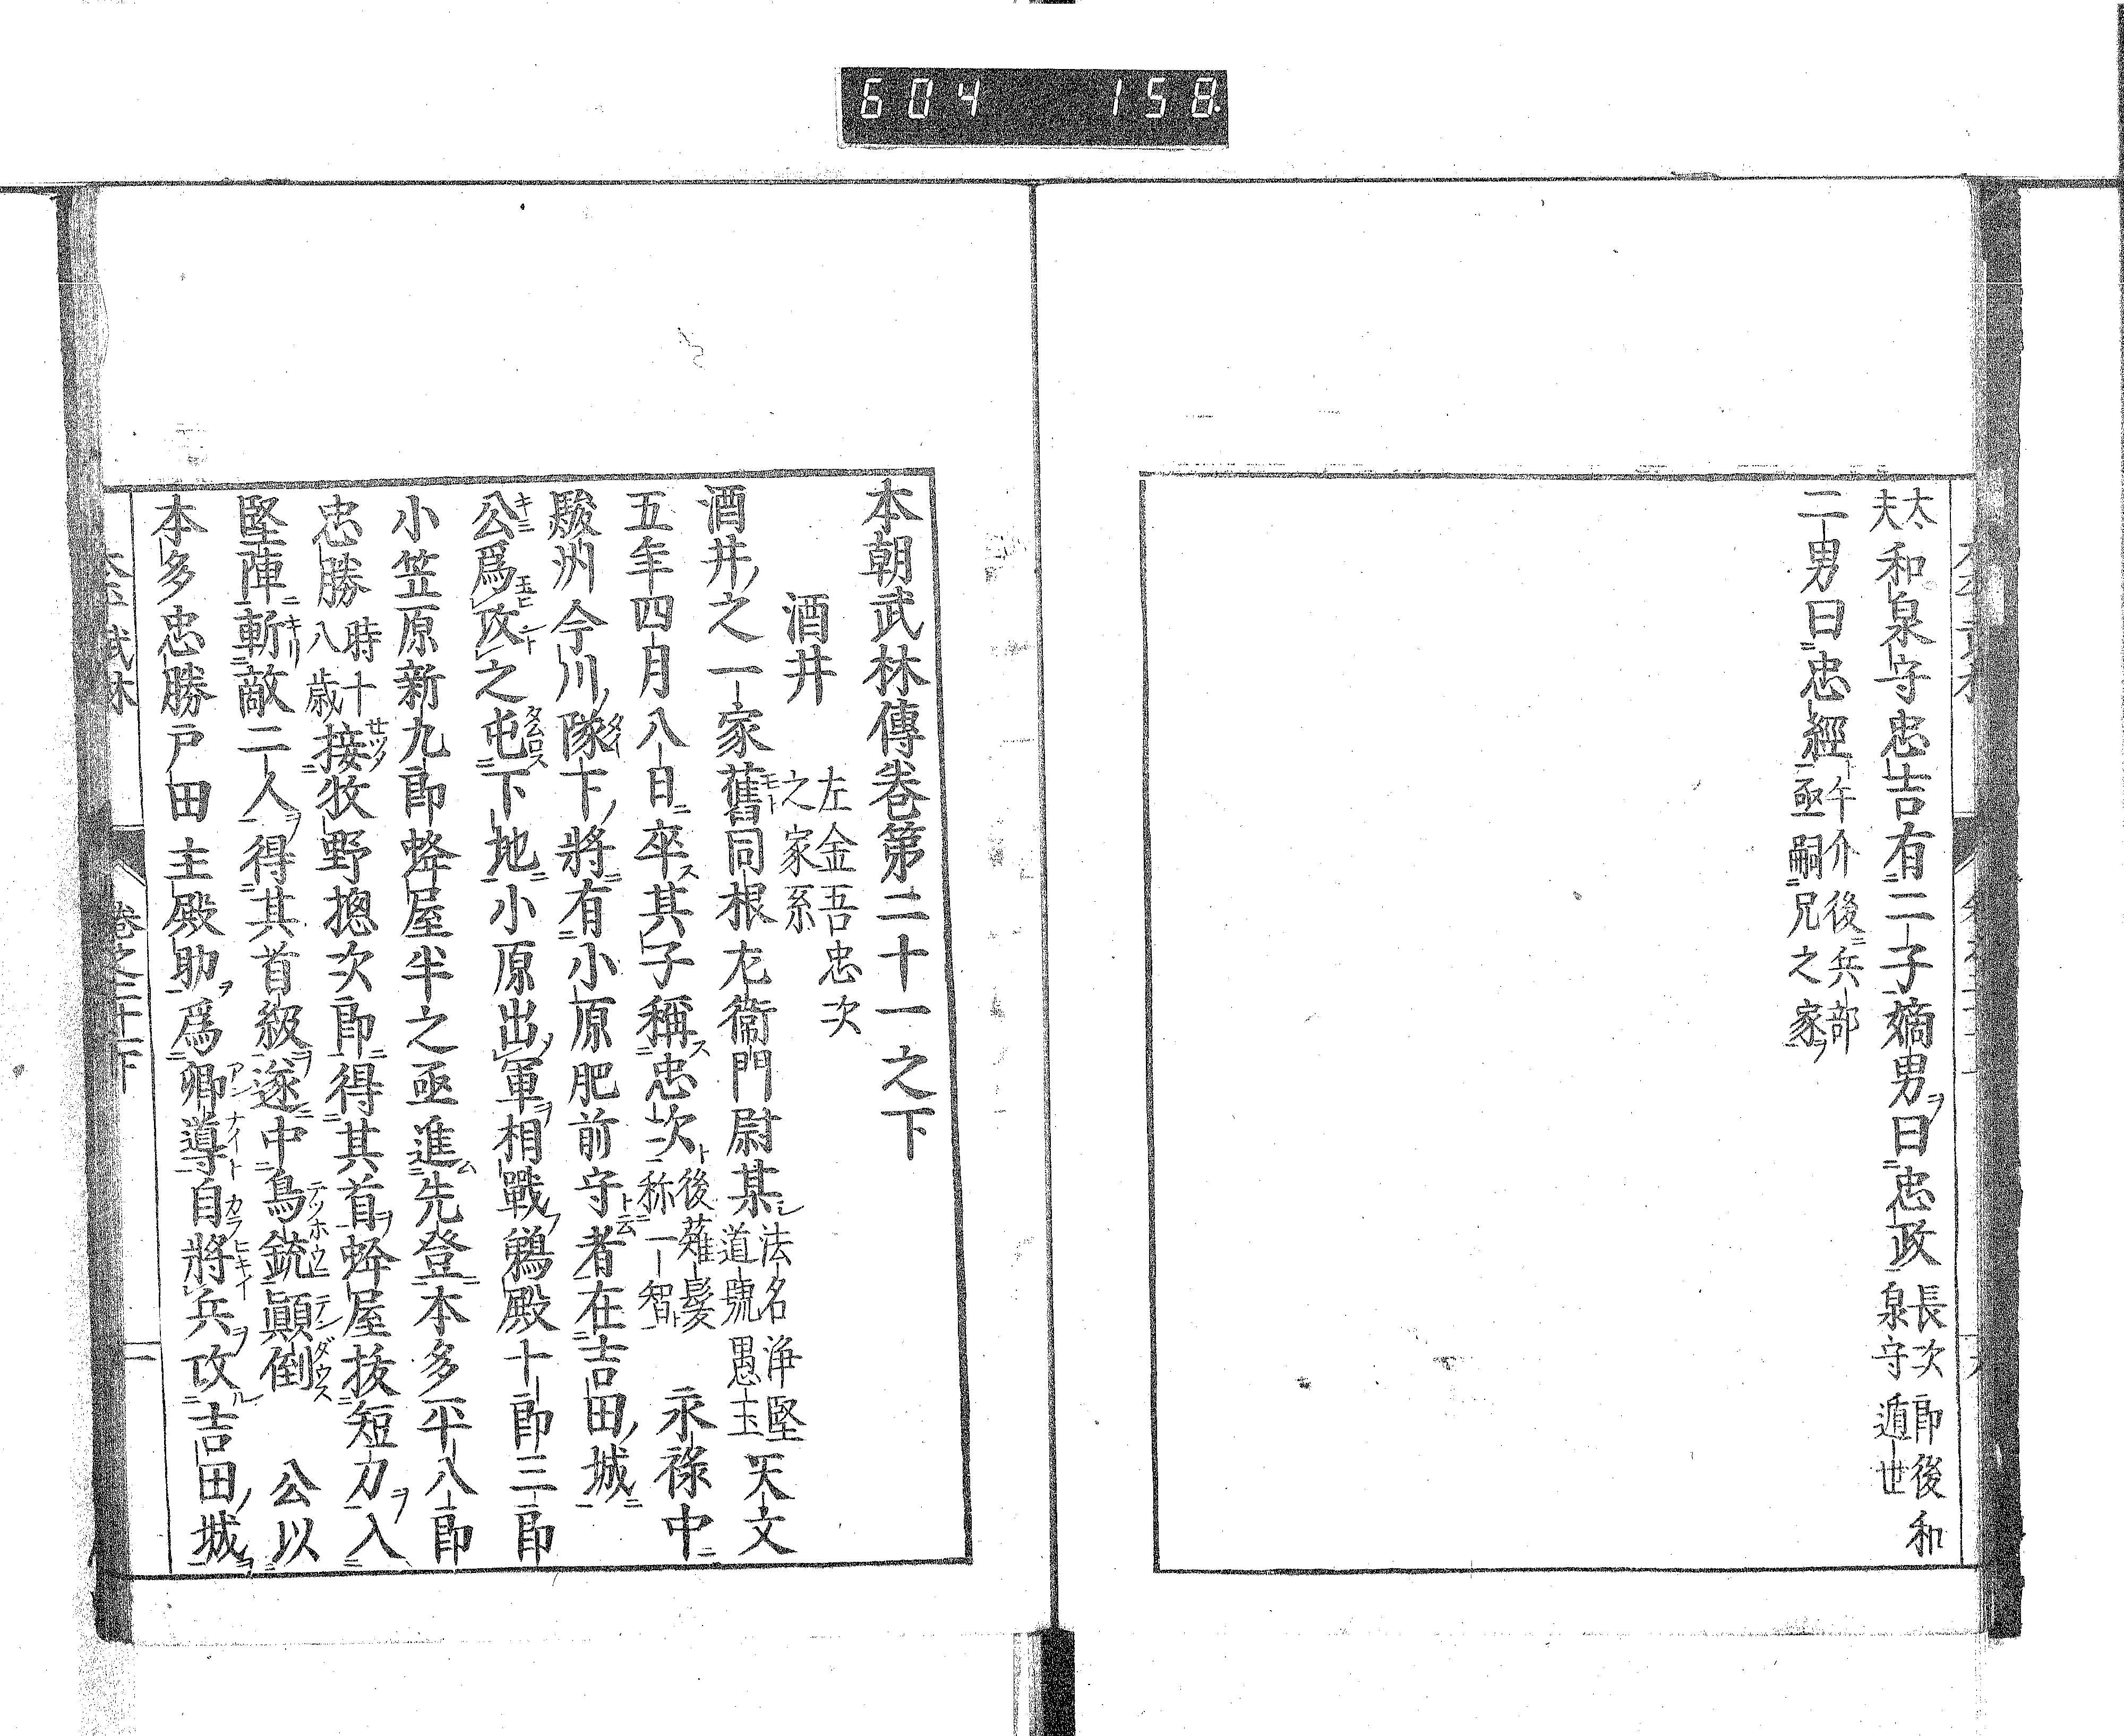 604 158
太夫和泉守忠吉有二子嫡男曰忠政長次郎後和泉守遁世
二男曰忠經午介後兵部亟嗣兄之家
本朝武林傳卷第二十一之下
酒井 左金吾忠次之家系
酒井之一家舊同根尤衞門尉某法名浄堅道號愚玉天文
五年四月八日卒其子稱忠次後薙髮称一智 永祿中
駿州今川隊下將有小原肥前守者在吉田城
公爲攻之屯下地小原出軍相戰鵜殿十郎三郎
小笠原新九郎蜂屋半之亟進先登本多平八郎
忠勝時十八歳接牧野摠次郎得其首蜂屋抜短刀入
堅陣斬敵二人得其首級遂中鳥銃顛倒 公以
本多忠勝戸田主殿助爲卿導自將兵攻吉田城
卷之二十一下 一